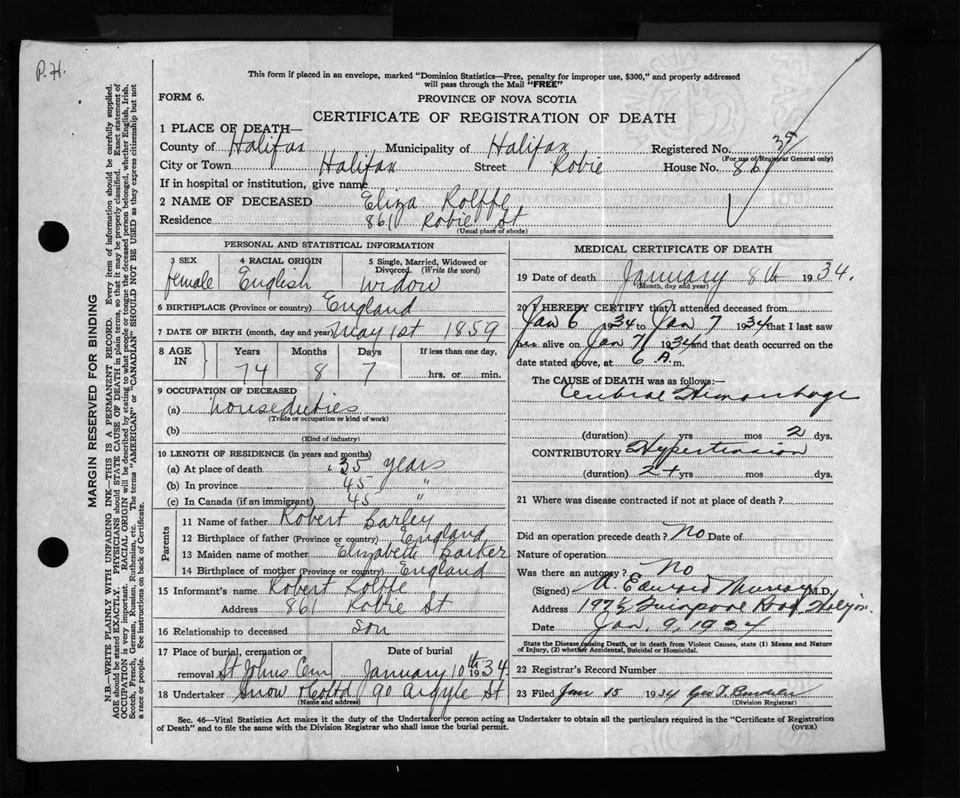 P.H.
This form if placed in an envelope, marked "Dominion Statistics—Free, penalty for improper use, $300," and properly addressed
will pass through the Mail "FREE"
FORM 6.
PROVINCE OF NOVA SCOTIA
CERTIFICATE OF REGISTRATION OF DEATH
1 PLACE OF DEATH—
County of Halifax Municipality of Halifax Registered No. 35
(For use of Registrar General only)
City or Town Halifax Street Robie House No. 861
If in hospital or institution, give name
2 NAME OF DECEASED Eliza Rolffe
Residence 861 Robie St
(Usual place of abode)
PERSONAL AND STATISTICAL INFORMATION
3 SEX 4 RACIAL ORIGIN 5 Single, Married, Widowed or
Divorced (Write the word)
female English widow
6 BIRTHPLACE (Province or country) England
7 DATE OF BIRTH (month, day and year) May 1st 1859
8 AGE IN Years Months Days If less than one day,
74 8 7 hrs. or min.
9 OCCUPATION OF DECEASED
(a) houseduties
(Trade or occupation or kind of work)
(b)
(Kind of industry)
10 LENGTH OF RESIDENCE (in years and months)
(a) At place of death 35 years
(b) In province 45 "
(c) In Canada (if an immigrant) 45 "
Parents
11 Name of father Robert Barley
12 Birthplace of father (Province or country) England
13 Maiden name of mother Elizabeth Barker
14 Birthplace of mother (Province or country) England
15 Informant's name Robert Rolffe
Address 861 Robie St
16 Relationship to deceased son
17 Place of burial, cremation or Date of burial
removal St Johns Cem January 10th 1934
18 Undertaker Snow & Co Ltd 90 Argyle St
(Name and address)
MEDICAL CERTIFICATE OF DEATH
19 Date of death January 8th 1934.
(Month, day and year)
20 I HEREBY CERTIFY that I attended deceased from
Jan 6 1934 to Jan 7 1934 that I last saw
her alive on Jan 7 1934 and that death occurred on the
date stated above, at 6 A.m.
The CAUSE OF DEATH was as follows:—
Cerebral Hemorrhage
(duration) yrs mos 2 dys.
CONTRIBUTORY Hypertension
(duration) 2+ yrs mos dys.
21 Where was disease contracted if not at place of death?
Did an operation precede death? No Date of
Nature of operation
Was there an autopsy? No
(Signed) Edward Murray M.D.
Address 197½ Quinpool Road Halifax
Date Jan. 9, 1934
State the Disease causing Death, or in death from Violent Causes, state (1) Means and Nature
of Injury, (2) whether Accidental, Suicidal or Homicidal.
22 Registrar's Record Number
23 Filed Jan 15 1934 Geo
(Division Registrar)
Sec. 46—Vital Statistics Act makes it the duty of the Undertaker or person acting as Undertaker to obtain all the particulars required in the "Certificate of Registration
of Death" and to file the same with the Division Registrar who shall issue the burial permit. (OVER)
MARGIN RESERVED FOR BINDING
N.B.—WRITE PLAINLY WITH UNFADING INK—THIS IS A PERMANENT RECORD. Every item of information should be carefully supplied.
AGE should be stated EXACTLY. PHYSICIANS should STATE CAUSE OF DEATH in plain terms, so that it may be properly classified. Exact statement of
OCCUPATION is very important. RACIAL ORIGIN will be described by stating to what people or tongue the deceased person belonged, whether English, Irish,
Scotch, French, German, Russian, Ruthenian, etc. The terms "AMERICAN" or "CANADIAN" SHOULD NOT BE USED as they express citizenship but not
a race or people. See instructions on back of Certificate.